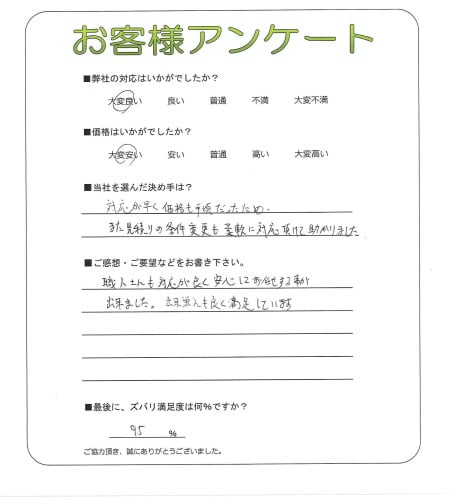 お客様アンケート
■弊社の対応はいかがでしたか？
大変良い 良い 普通 不満 大変不満
■価格はいかがでしたか？
大変安い 安い 普通 高い 大変高い
■当社を選んだ決め手は？
対応が早く価格も手頃だったため。
また見積りの条件変更も柔軟に対応頂けて助かりました
■ご感想・ご要望などをお書き下さい。
職人さんも対応が良く安心してお任せする事が
出来ました。出来栄えも良く満足しています
■最後に、ズバリ満足度は何％ですか？
95 ％
ご協力頂き、誠にありがとうございました。